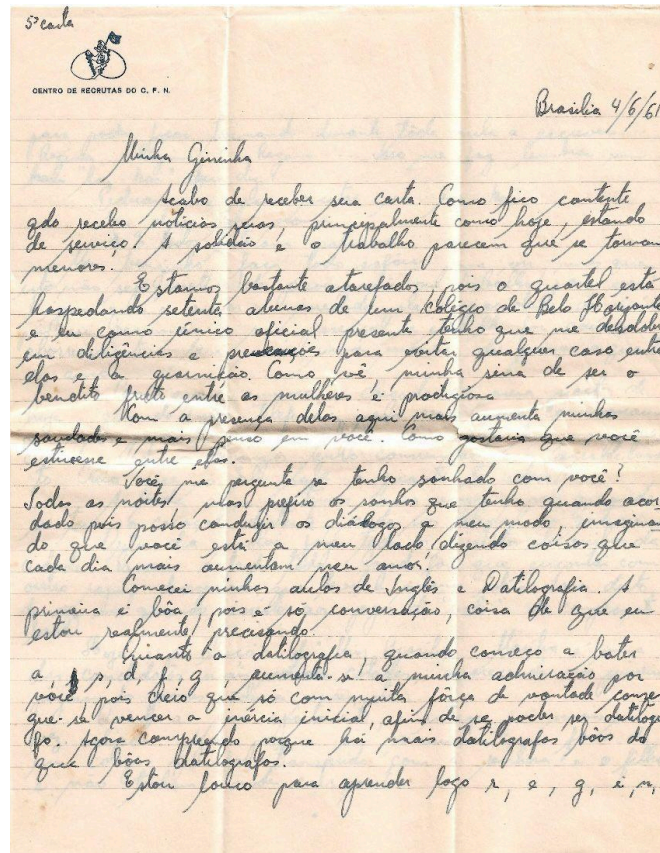 5ª carta
CENTRO DE RECRUTAS DO C. F. N.
Brasilia 4/6/61
Minha Gininha
Acabo de receber sua carta. Como fico contente
qdo recebo notícias suas, principalmente como hoje, estando
de serviço. A solidão e o trabalho parecem que se tornam
menores.
Estamos bastante atarefados, pois o quartel está
hospedando setenta alunas de um colégio de Belo Horizonte
e eu como único oficial presente tenho que me desdobrar
em diligências e precauções para evitar qualquer caso entre
elas e a guarnição. Como vê, minha sina de ser o
bendito fruto entre as mulheres é prodigiosa
Com a presença delas aqui mais aumenta minhas
saudades e mais penso em você. Como gostaria que você
estivesse entre elas.
Você me pergunta se tenho sonhado com você?
Todas as noites, mas prefiro os sonhos que tenho quando acor
dado pois posso conduzir os diálogos a meu modo, imaginan
do que você está a meu lado, dizendo coisas que
cada dia mais aumentam meu amor.
Comecei minhas aulas de Inglês e Datilografia. A
primeira é bôa, pois é só conversação, coisa de que eu
estou realmente precisando.
Quanto a datilografia, quando começo a bater
a, s, d, f, g, aumenta-se a minha admiração por
você, pois creio que só com muita fôrça de vontade conse
gue-se vencer a inércia inicial, afim de se poder ser datilogra
fo. Agora compreendo porque há mais datilografas bôas do
que bôas datilografos.
Estou louco para aprender logo r, e, g, i, n,